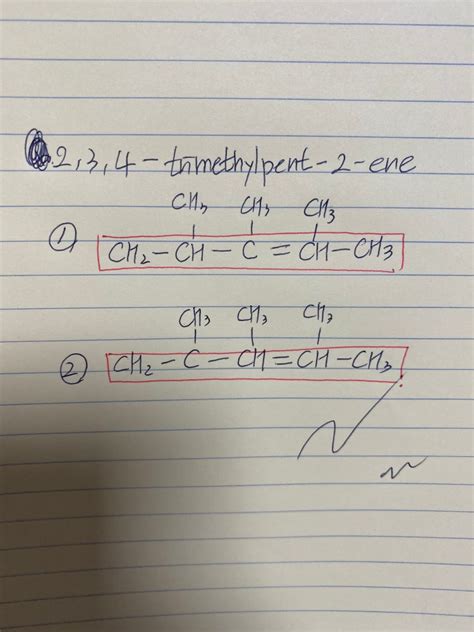 2,3,4-trimethylpent-2-ene
CH3 CH3 CH3
① CH2-CH-C=CH-CH3
CH3 CH3 CH3
② CH2-C-CH=CH-CH3